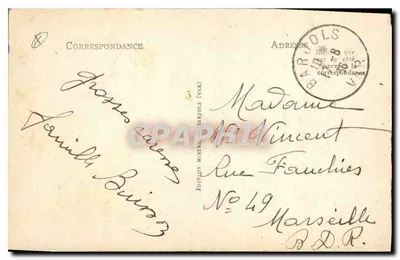 CORRESPONDANCE
ADRESSE
BARJOLS
VAR
Grosses caresses
Famille
ÉDITION MISTRAL BARJOLS (VAR)
Madame
Vincent
Rue
No 49
Marseille
B.D.R.